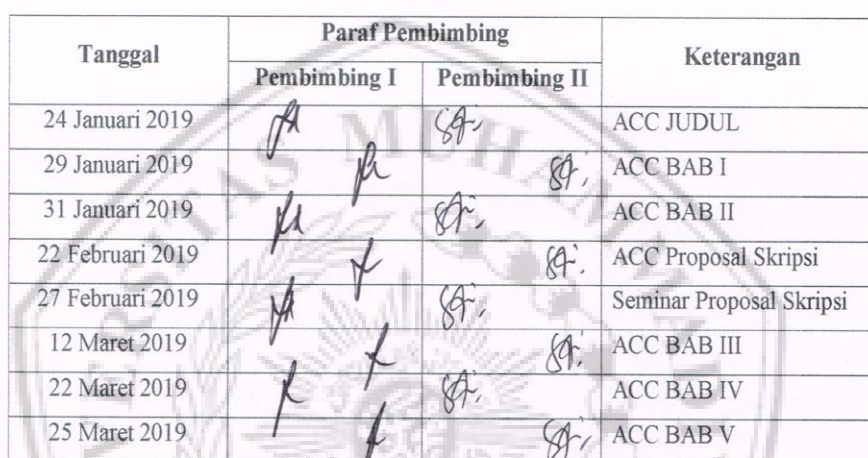 Tanggal Paraf Pembimbing Keterangan
Pembimbing I Pembimbing II
24 Januari 2019 ACC JUDUL
29 Januari 2019 ACC BAB I
31 Januari 2019 ACC BAB II
22 Februari 2019 ACC Proposal Skripsi
27 Februari 2019 Seminar Proposal Skripsi
12 Maret 2019 ACC BAB III
22 Maret 2019 ACC BAB IV
25 Maret 2019 ACC BAB V